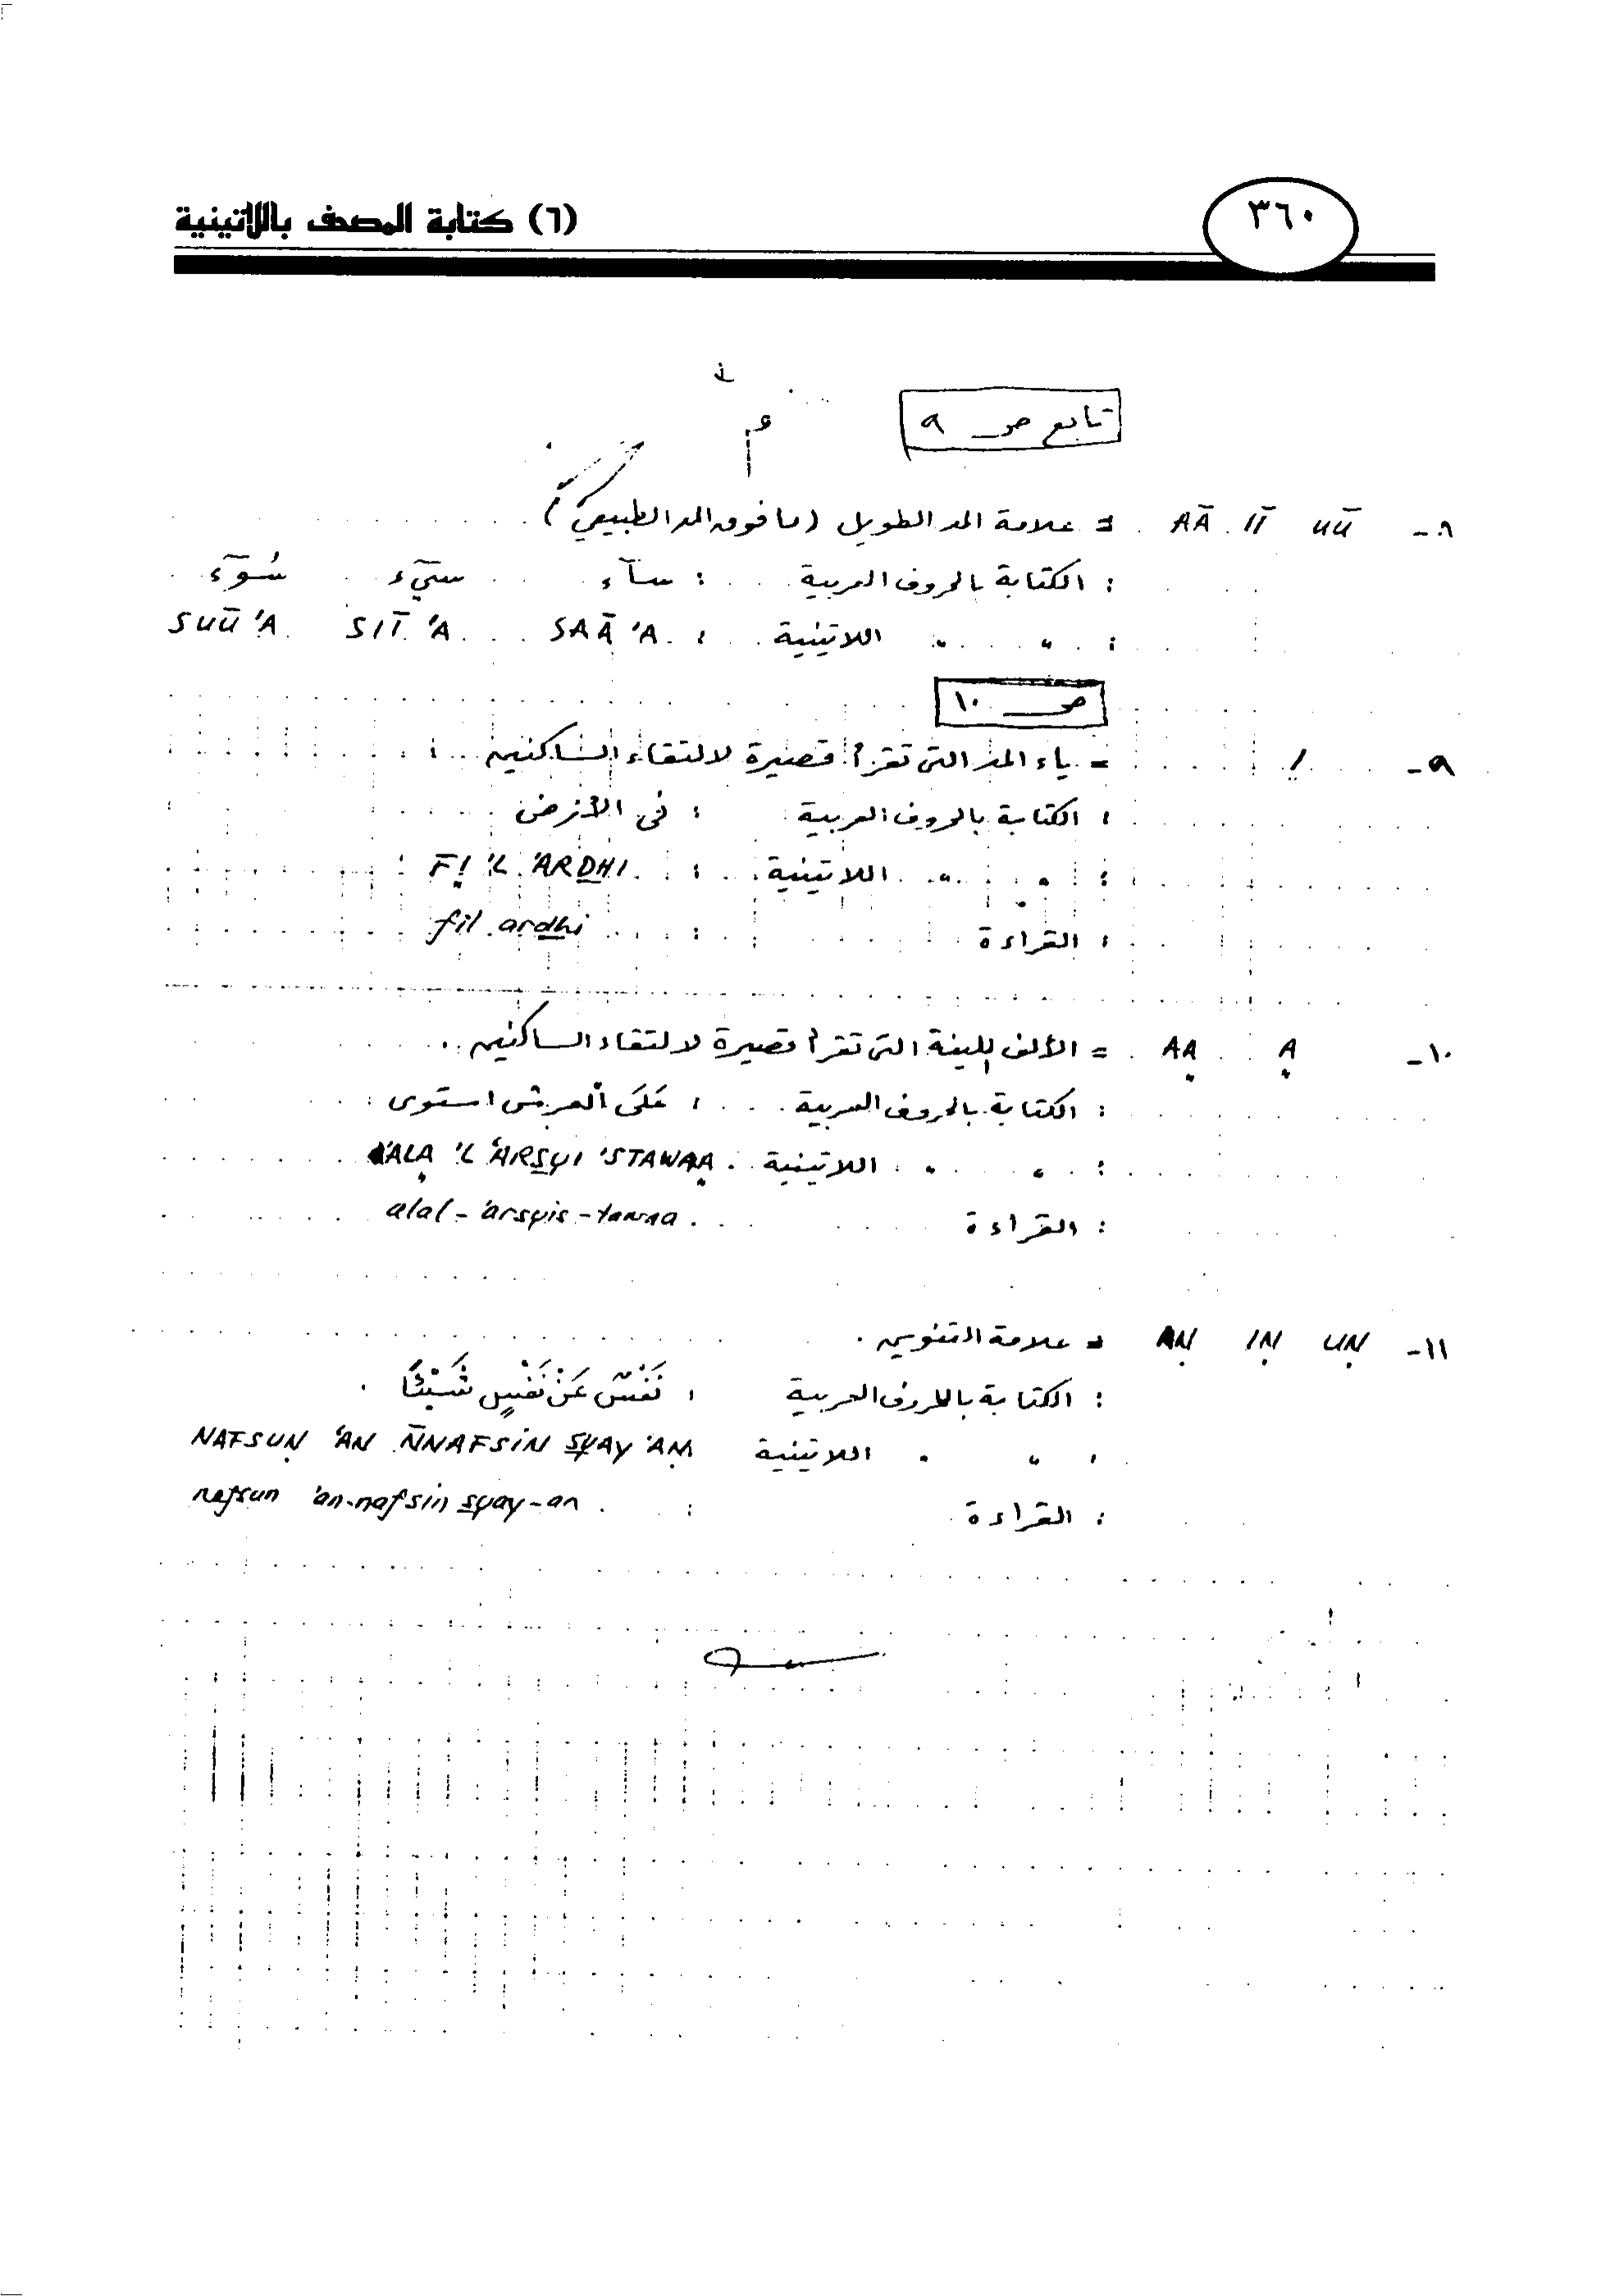 ٣٦٠ (٦) كتابة المصحف باللاتينية
تابع صـ ٩
٨- UŪ IĪ AĀ = علامة المد الطويل (ما فوق المد الطبيعي)
: الكتابة بالحروف العربية : سآء سيٓء سُوٓء
: " " اللاتينية : SAĀ 'A SIĪ 'A SUŪ 'A
صـ ١٠
٩- Ị = ياء المد التى تقرأ قصيرة لالتقاء الساكنين :
: الكتابة بالحروف العربية : فى الأرض
: " " اللاتينية : FỊ 'L 'ARDHI
: القراءة : fil ardhi
١٠- Ạ AẠ = الألف اللينة التى تقرأ قصيرة لالتقاء الساكنين ..
: الكتابة بالحروف العربية : عَلَى الْعرش استوى
: " " اللاتينية 'ALẠ 'L 'ARSYI 'STAWAẠ
: القراءة alal-'arsyis-tawaa
١١- UṆ IṆ AṆ = علامة التنوين .
: الكتابة بالحروف العربية : نَفْسٌ عَنْ نَفْسٍ شَيْئًا .
: " " اللاتينية NAFSUṆ 'AN N̄NAFSIN SYAY 'AṆ
: القراءة : nafsun 'an-nafsin syay-an